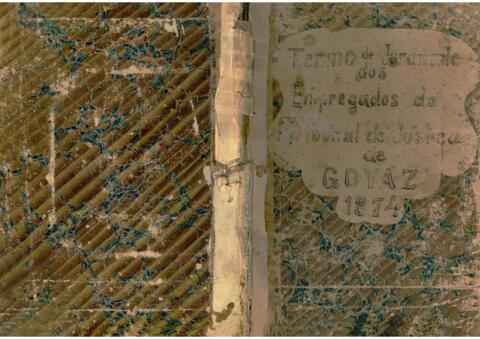 Termo de Juramento
dos
Empregados do
Tribunal de Justiça
de
GOYAZ
1874